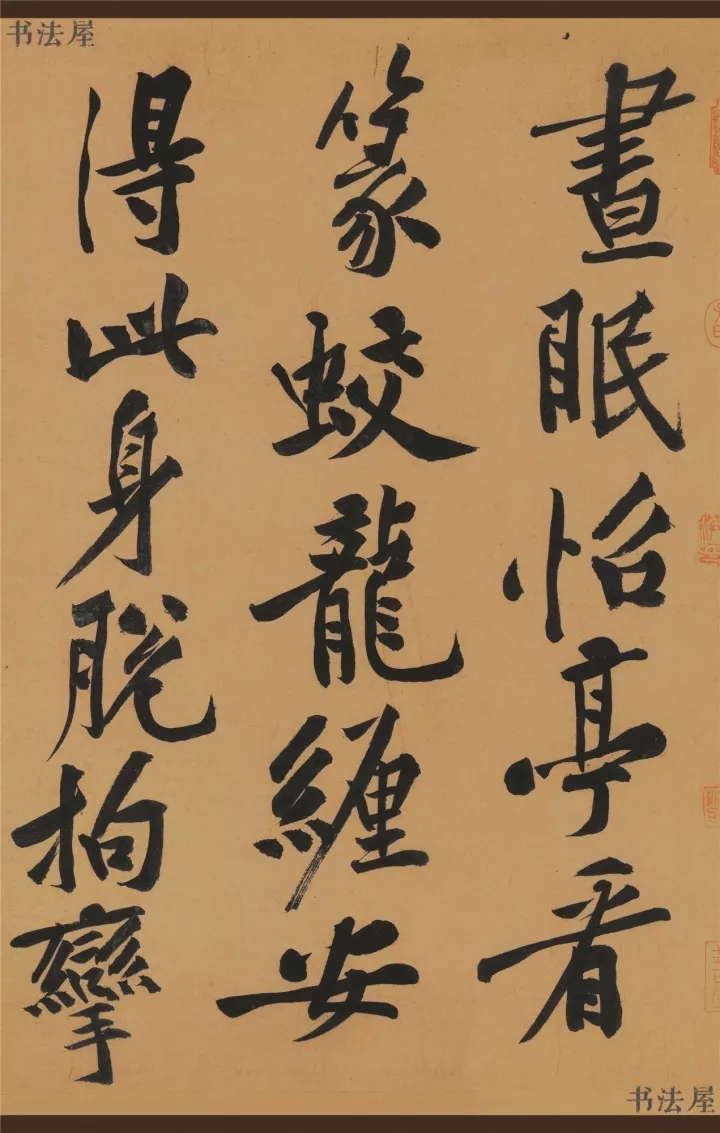 书法屋
晝眠怡亭看
篆蛟龍纏安
得此身脫拘攣
书法屋